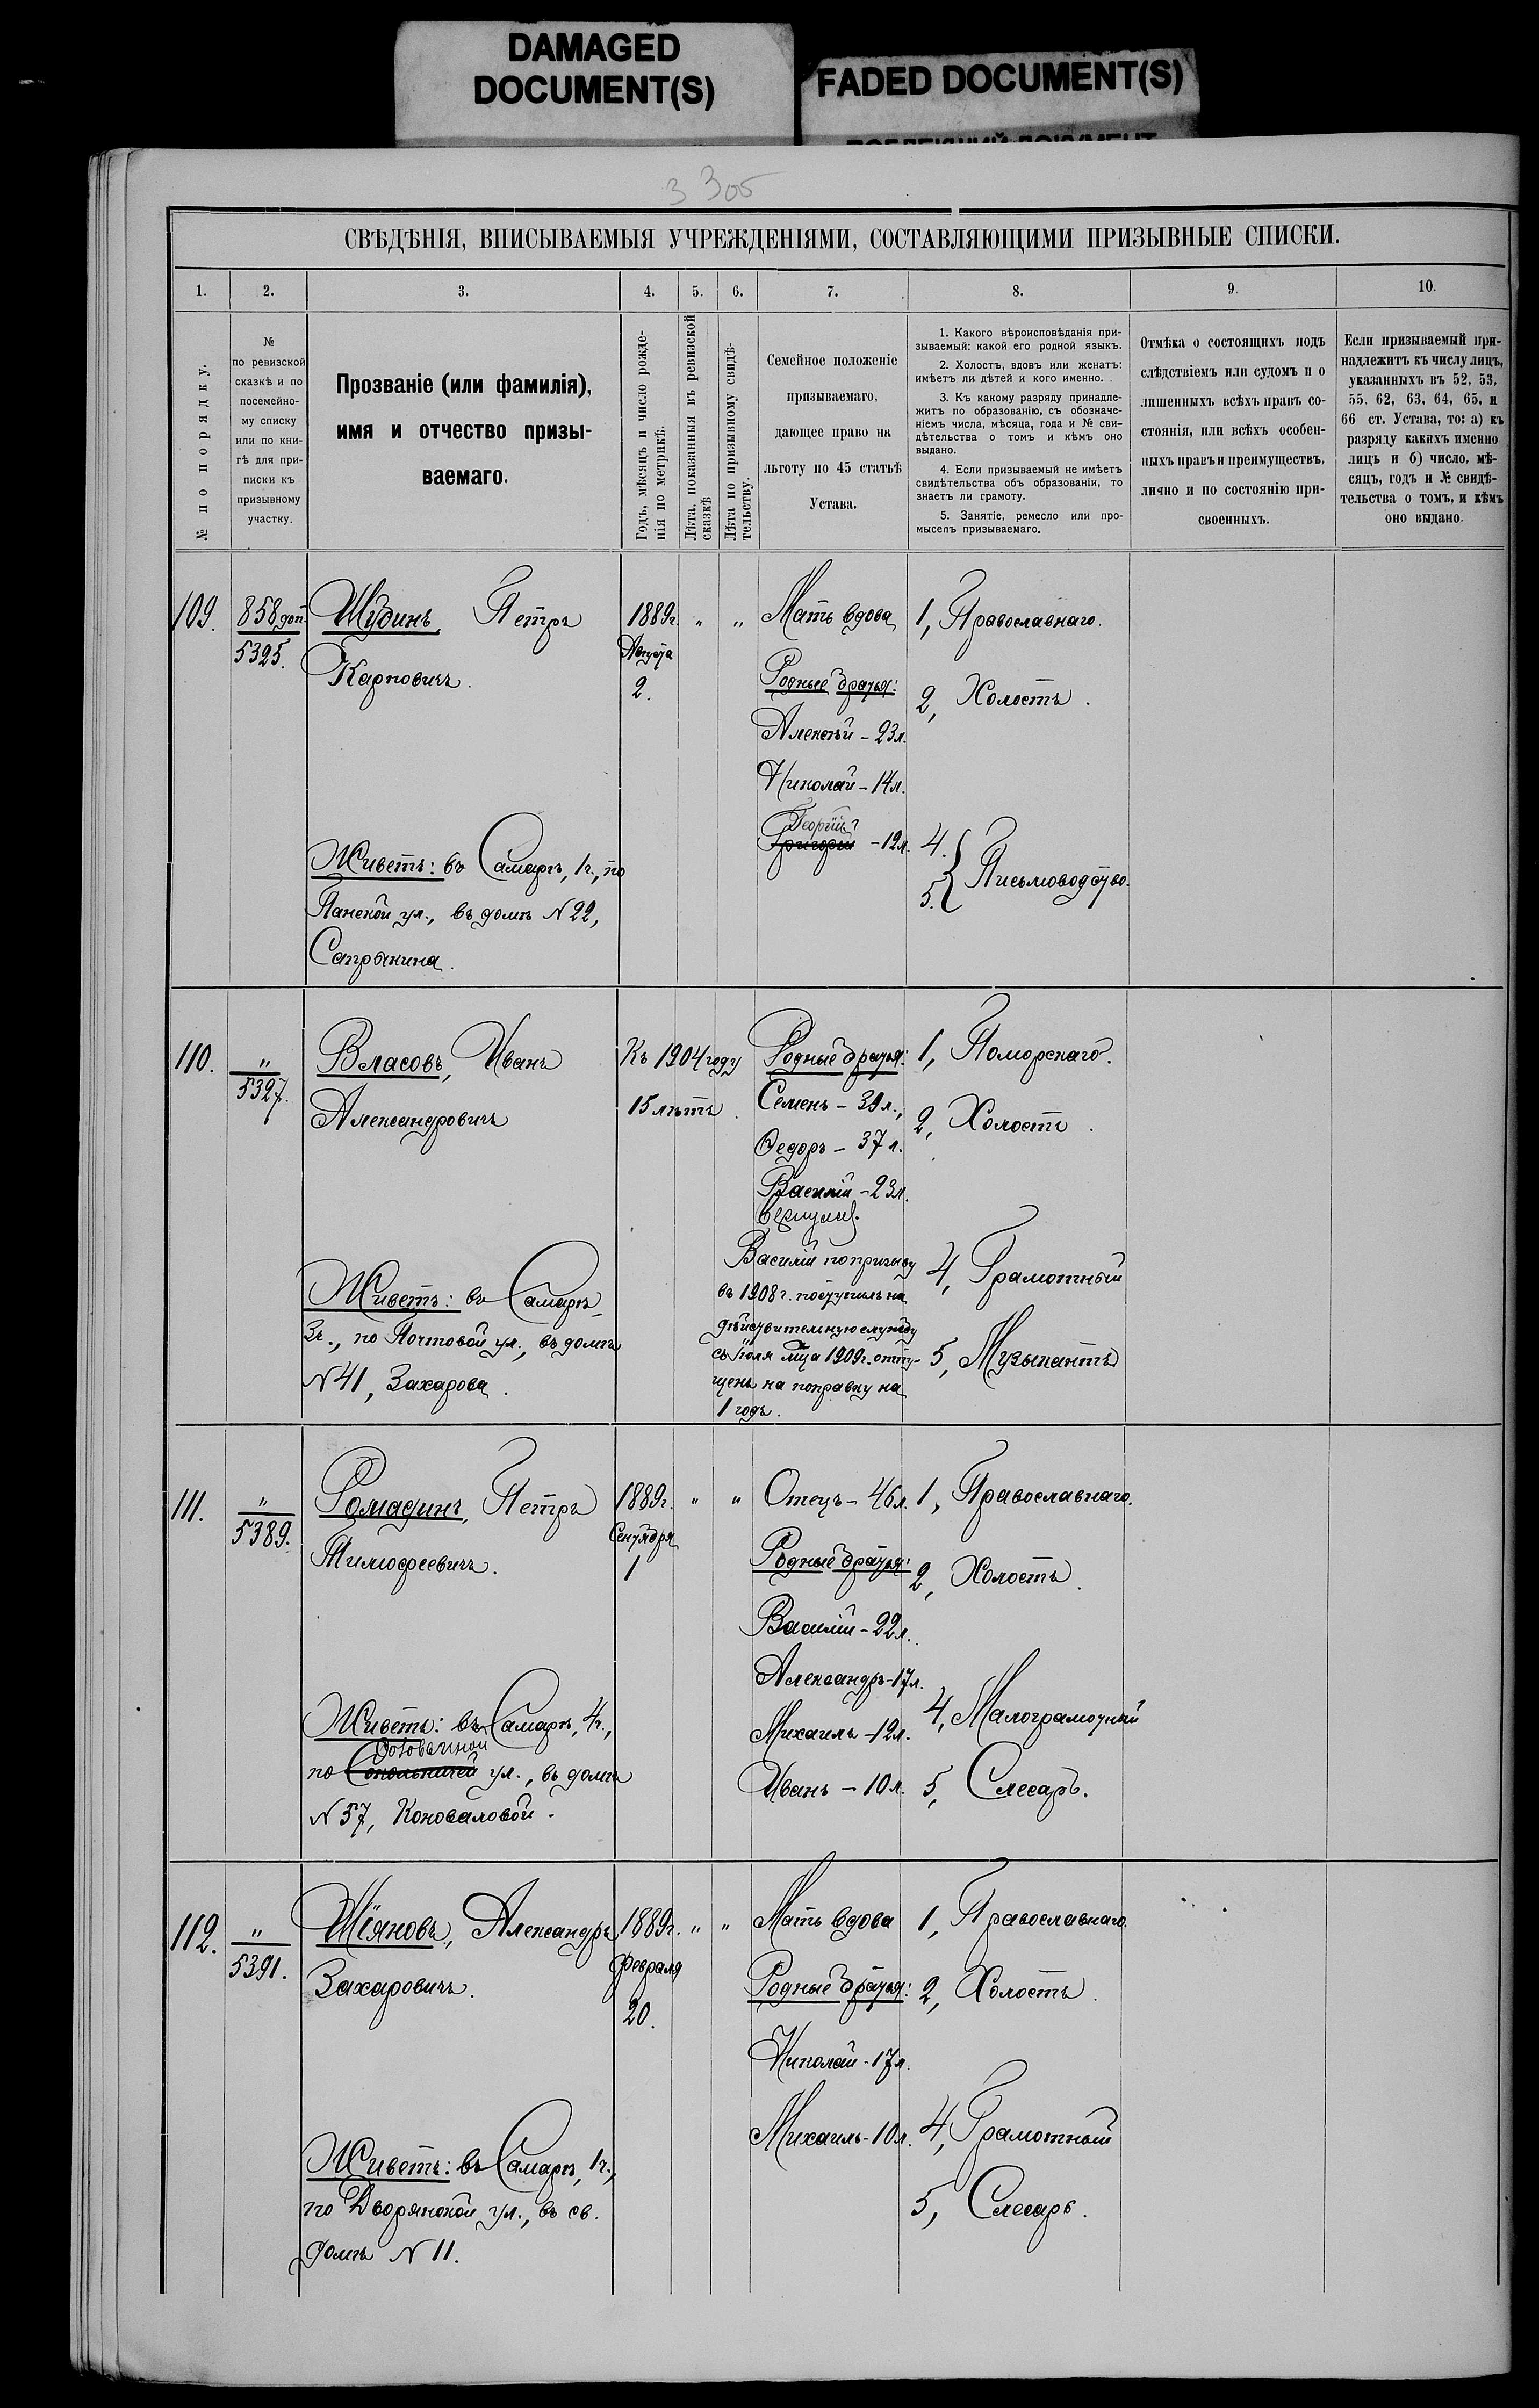 DAMAGED
DOCUMENT(S)
FADED DOCUMENT(S)
3 305
СВѢДѢНІЯ, ВПИСЫВАЕМЫЯ УЧРЕЖДЕНІЯМИ, СОСТАВЛЯЮЩИМИ ПРИЗЫВНЫЕ СПИСКИ.
1. 2. 3. 4. 5. 6. 7. 8. 9. 10.
№ по порядку.
№
по ревизской
сказкѣ и по
посемейно-
му списку
или по кни-
гѣ для при-
писки къ
призывному
участку.
Прозваніе (или фамилія),
имя и отчество призы-
ваемаго.
Годъ, мѣсяцъ и число рожде-
нія по метрикѣ.
Лѣта, показанныя въ ревизской
сказкѣ
Лѣта по призывному свидѣ-
тельству.
Семейное положеніе
призываемаго,
дающее право на
льготу по 45 статьѣ
Устава.
1. Какого вѣроисповѣданія при-
зываемый: какой его родной языкъ.
2. Холостъ, вдовъ или женатъ:
имѣетъ ли дѣтей и кого именно.
3. Къ какому разряду принадле-
житъ по образованію, съ обозначе-
ніемъ числа, мѣсяца, года и № сви-
дѣтельства о томъ и кѣмъ оно
выдано.
4. Если призываемый не имѣетъ
свидѣтельства объ образованіи, то
знаетъ ли грамоту.
5. Занятіе, ремесло или про-
мыселъ призываемаго.
Отмѣка о состоящихъ подъ
слѣдствіемъ или судомъ и о
лишенныхъ всѣхъ правъ со-
стоянія, или всѣхъ особен-
ныхъ правъ и преимуществъ,
лично и по состоянію при-
своенныхъ.
Если призываемый при-
надлежитъ къ числу лицъ,
указанныхъ въ 52, 53,
55, 62, 63, 64, 65, и
66 ст. Устава, то: а) къ
разряду какихъ именно
лицъ и б) число, мѣ-
сяцъ, годъ и № свидѣ-
тельства о томъ, и кѣмъ
оно выдано.
109.
858 доп.
5325.
Шудинъ, Петръ
Карповичъ.
Живетъ: въ Самарѣ, 1ч., по
Панской ул., въ домѣ N 22,
1889г.
Августа
2.
" "
Мать вдова
Родные братья:
Алексѣй - 23л.
Николай - 14л.
Георгій
Григорій - 12л.
1, Православнаго.
2, Холостъ.
4.
5. Письмоводство.
110.
"
5327.
Власовъ, Иванъ
Александровичъ
Живетъ: въ Самарѣ
3ч., по Почтовой ул., въ домѣ
N 41, Захарова.
Къ 1904 году
15 лѣтъ.
Родные братья:
Семенъ - 39л.,
Федоръ - 37л.
Василій - 23л.
Василій по призыву
въ 1908 г. поступилъ на
дѣйствительную службу
съ Іюля м-ца 1909г. отпу-
щенъ на поправку на
1 годъ.
1, Поморскаго.
2, Холостъ.
4, Грамотный
5, Музыкантъ
111.
"
5389.
Ромадинъ, Петръ
Тимофеевичъ.
Живетъ: въ Самарѣ, 4ч.,
по Сокольничей ул., въ домѣ
N 57, Коноваловой.
1889г.
Сентября
1
" "
Отецъ - 46л.
Родные братья:
Василій - 22л.
Александръ - 17л.
Михаилъ - 12л.
Иванъ - 10л.
1, Православнаго.
2, Холостъ.
4, Малограмотный
5, Слесарь.
112.
"
5391.
Шіяновъ, Александръ
Захаровичъ.
Живетъ: въ Самарѣ, 1ч.,
по Дворянской ул., въ св.
домѣ N 11.
1889г.
Февраля
20.
" "
Мать вдова
Родные братья:
Николай - 17л.
Михаилъ - 10л.
1, Православнаго.
2, Холостъ.
4, Грамотный
5, Слесарь.